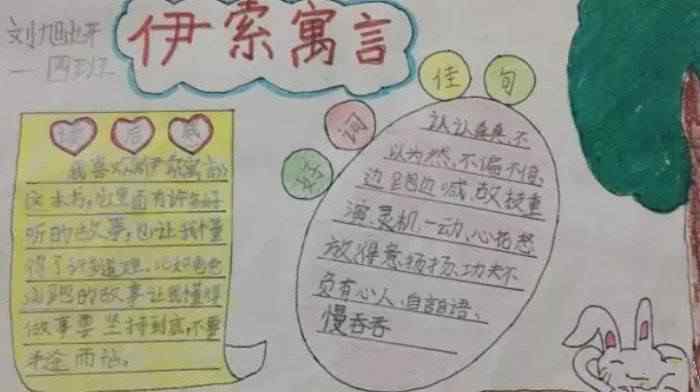 刘旭妍
一四班
伊索寓言
读后感
我喜欢《伊索寓言》
这本书，它里面有许多好
听的故事，也让我懂
得了许多道理。比如龟兔
赛跑的故事让我懂得
做事要坚持到底，不要
半途而
好词
佳句
认认真真、不
以为然、不偏不倚、
边跑边喊、故技重
演、灵机一动、心花怒
放、得意扬扬、功夫不
负有心人、自言自语、
慢吞吞